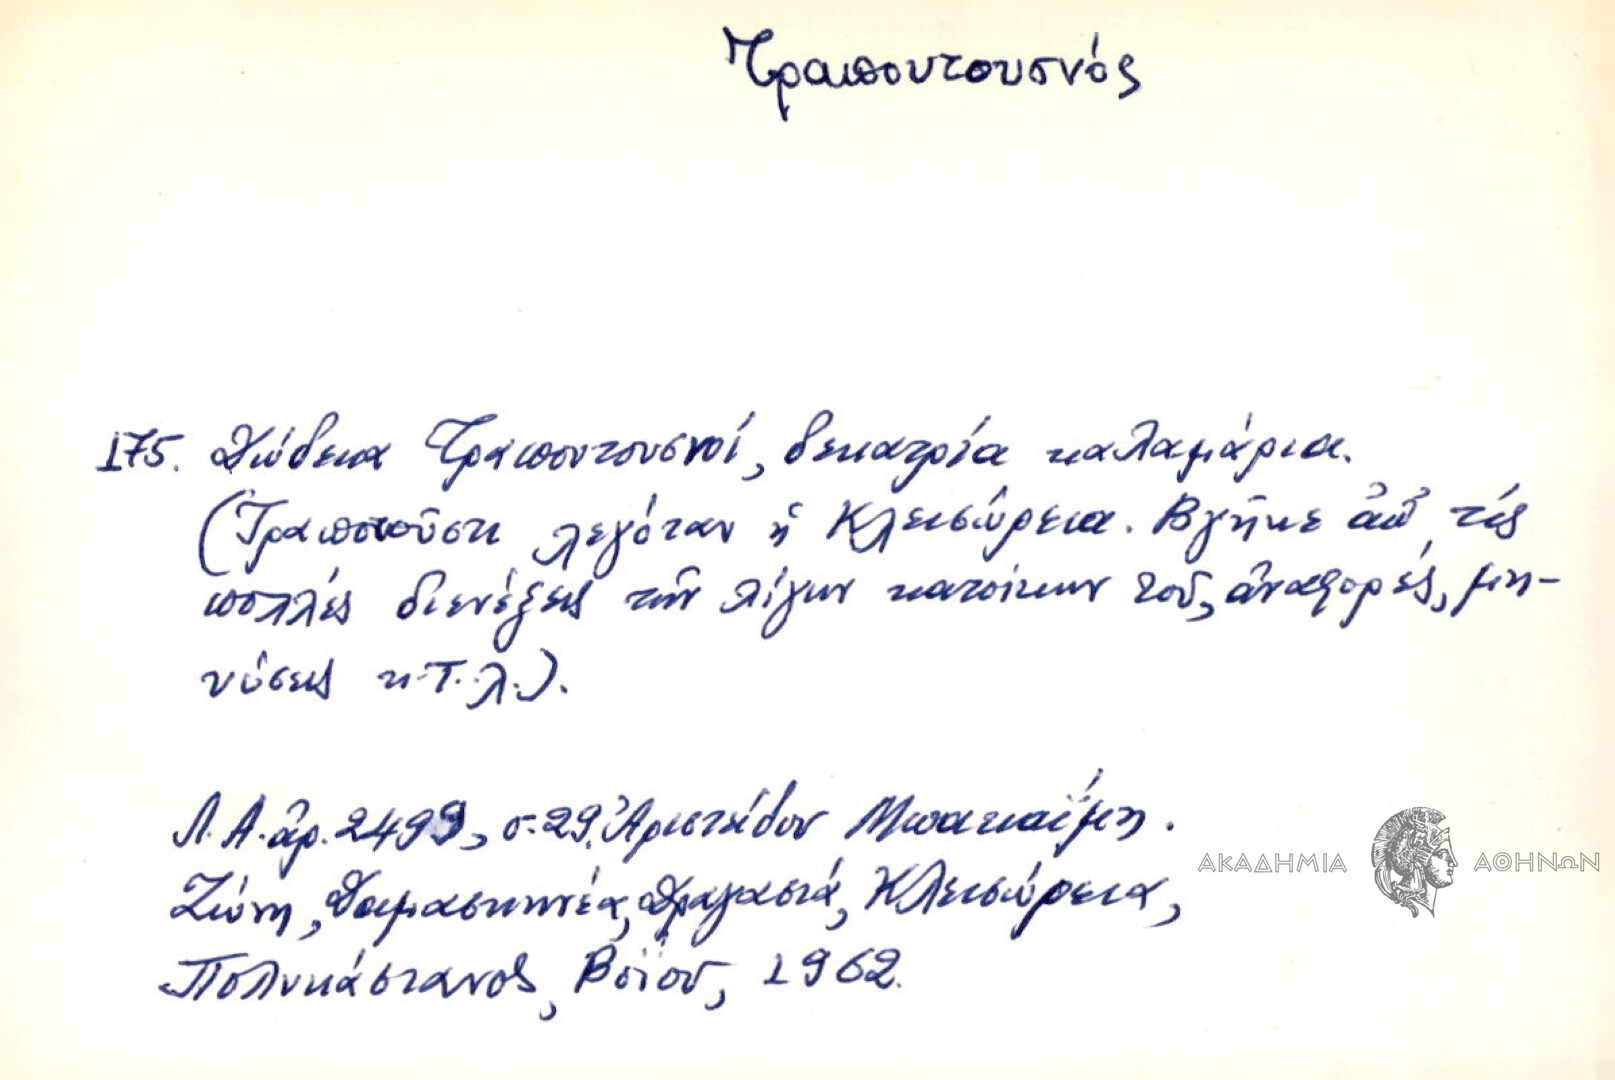 Τραπουτουσνός
175. Δώδεκα Τραπουτουσνοί, δεκατρία καλαμάρια.
(Τραπατοῦστι λεγόταν ἡ Κλεισώρεια. Βγῆκε ἀπ' τίς
πολλές διενέξεις τῶν λίγων κατοίκων του, ἀναφορές, μη-
νύσεις κ.τ.λ.).
Λ.Α. ἀρ. 2499, σ. 29, Ἀριστείδου Μπακαΐμη.
Ζώνη, Δαμασκηνέα, Δραγασιά, Κλεισώρεια,
Πολυκάστανος, Βοΐου, 1962.
ΑΚΑΔΗΜΙΑ ΑΘΗΝΩΝ